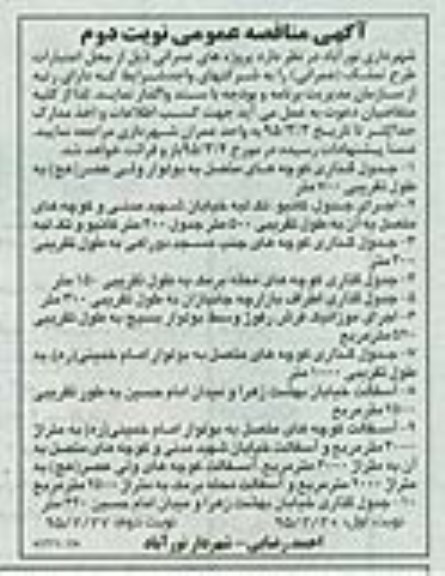 آگهی مناقصه عمومی نوبت دوم
شهرداری نورآباد در نظر دارد پروژه های عمرانی ذیل از محل اعتبارات
طرح تملک (عمرانی) را به شرکتهای واجدشرایط که دارای رتبه
از سازمان مدیریت برنامه و بودجه با سند واگذار نمایند. لذا از کلیه
متقاضیان دعوت به عمل می آید جهت کسب اطلاعات و اخذ مدارک
حداکثر تا تاریخ ۹۵/۳/۳ به واحد عمران شهرداری مراجعه نمایند.
ضمناً پیشنهادات رسیده در مورخ ۹۵/۳/۴ باز و قرائت خواهد شد.
۱- جدول گذاری کوچه های متصل به بولوار ولی عصر(عج) به
طول تقریبی ۳۰۰ متر
۲- اجرای جدول کانیو، تک لبه خیابان شهید مدنی و کوچه های
متصل به آن به طول تقریبی ۵۰۰ متر جدول ۲۰۰ متر کانیو و تک لبه
۳- جدول گذاری کوچه های جنب مسجد نورالهی به طول تقریبی
۲۰۰ متر
۴- جدول گذاری کوچه های محله برمد به طول تقریبی ۱۵۰ متر
۵- جدول گذاری اطراف بازارچه جانبازان به طول تقریبی ۳۰۰ متر
۶- اجرای موزائیک فرش رفوژ وسط بولوار بسیج به طول تقریبی
۵۳۰ مترمربع
۷- جدول گذاری کوچه های متصل به بولوار امام خمینی(ره) به
طول تقریبی ۱۰۰۰ متر
۸- آسفالت خیابان بهشت زهرا و میدان امام حسین به طور تقریبی
۲۵۰۰ مترمربع
۹- آسفالت کوچه های متصل به بولوار امام خمینی(ره) به متراژ
۳۰۰۰ مترمربع و آسفالت خیابان شهید مدنی و کوچه های متصل به
آن به متراژ ۳۰۰۰ مترمربع. آسفالت کوچه های ولی عصر(عج) به
متراژ ۲۰۰۰ مترمربع و آسفالت محله برمد به متراژ ۲۵۰۰ مترمربع
۱۰- جدول گذاری خیابان بهشت زهرا و میدان امام حسین ۲۴۰ متر
نوبت اول: ۹۵/۲/۲۰ نوبت دوم: ۹۵/۲/۲۷
احمد رضایی - شهردار نورآباد